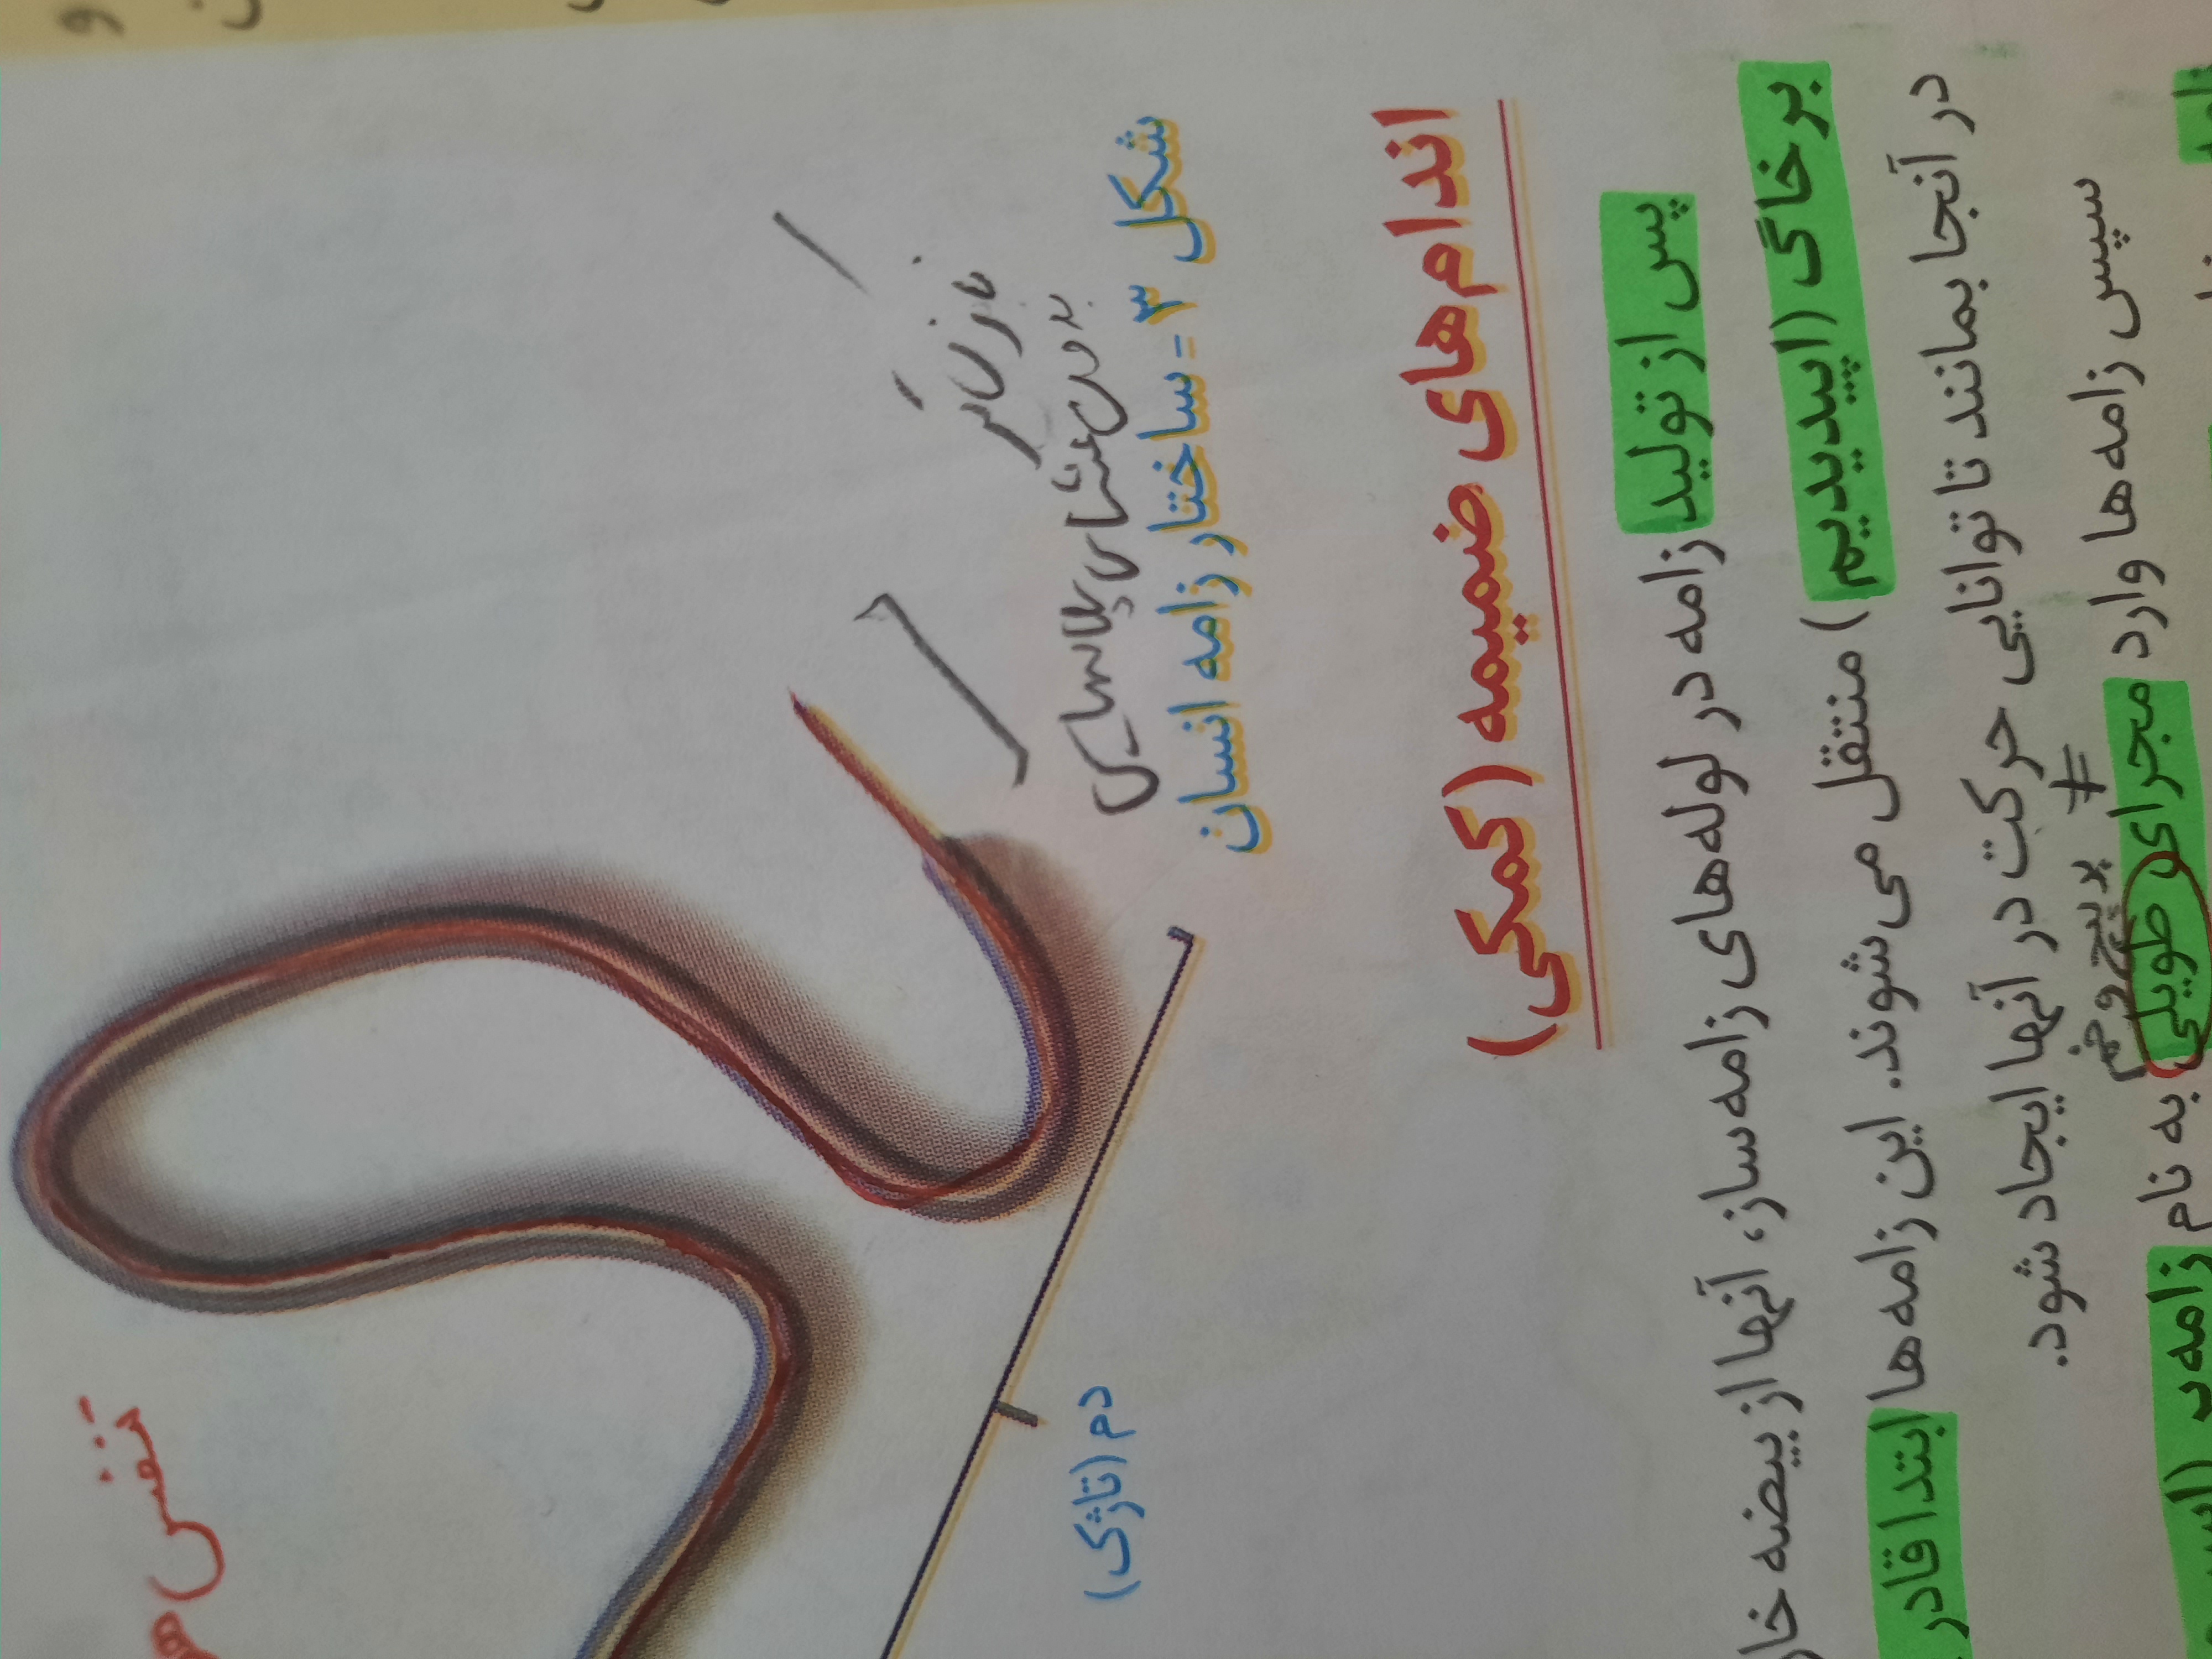 تنفس
نازک تر
بدون غشای پلاسمایی
دم (تاژک)
شکل ۳ - ساختار زامه انسان
اندام‌های ضمیمه (کمکی)
پس از تولید زامه در لوله‌های زامه‌ساز، آنها از بیضه خار
برخاگ (اپیدیدیم) منتقل می‌شوند. این زامه‌ها ابتدا قادر
در آنجا بمانند تا توانایی حرکت در آنها ایجاد شود.
پر پیچ و خم ≠
سپس زامه‌ها وارد مجرای طویلی به نام زامه‌بر